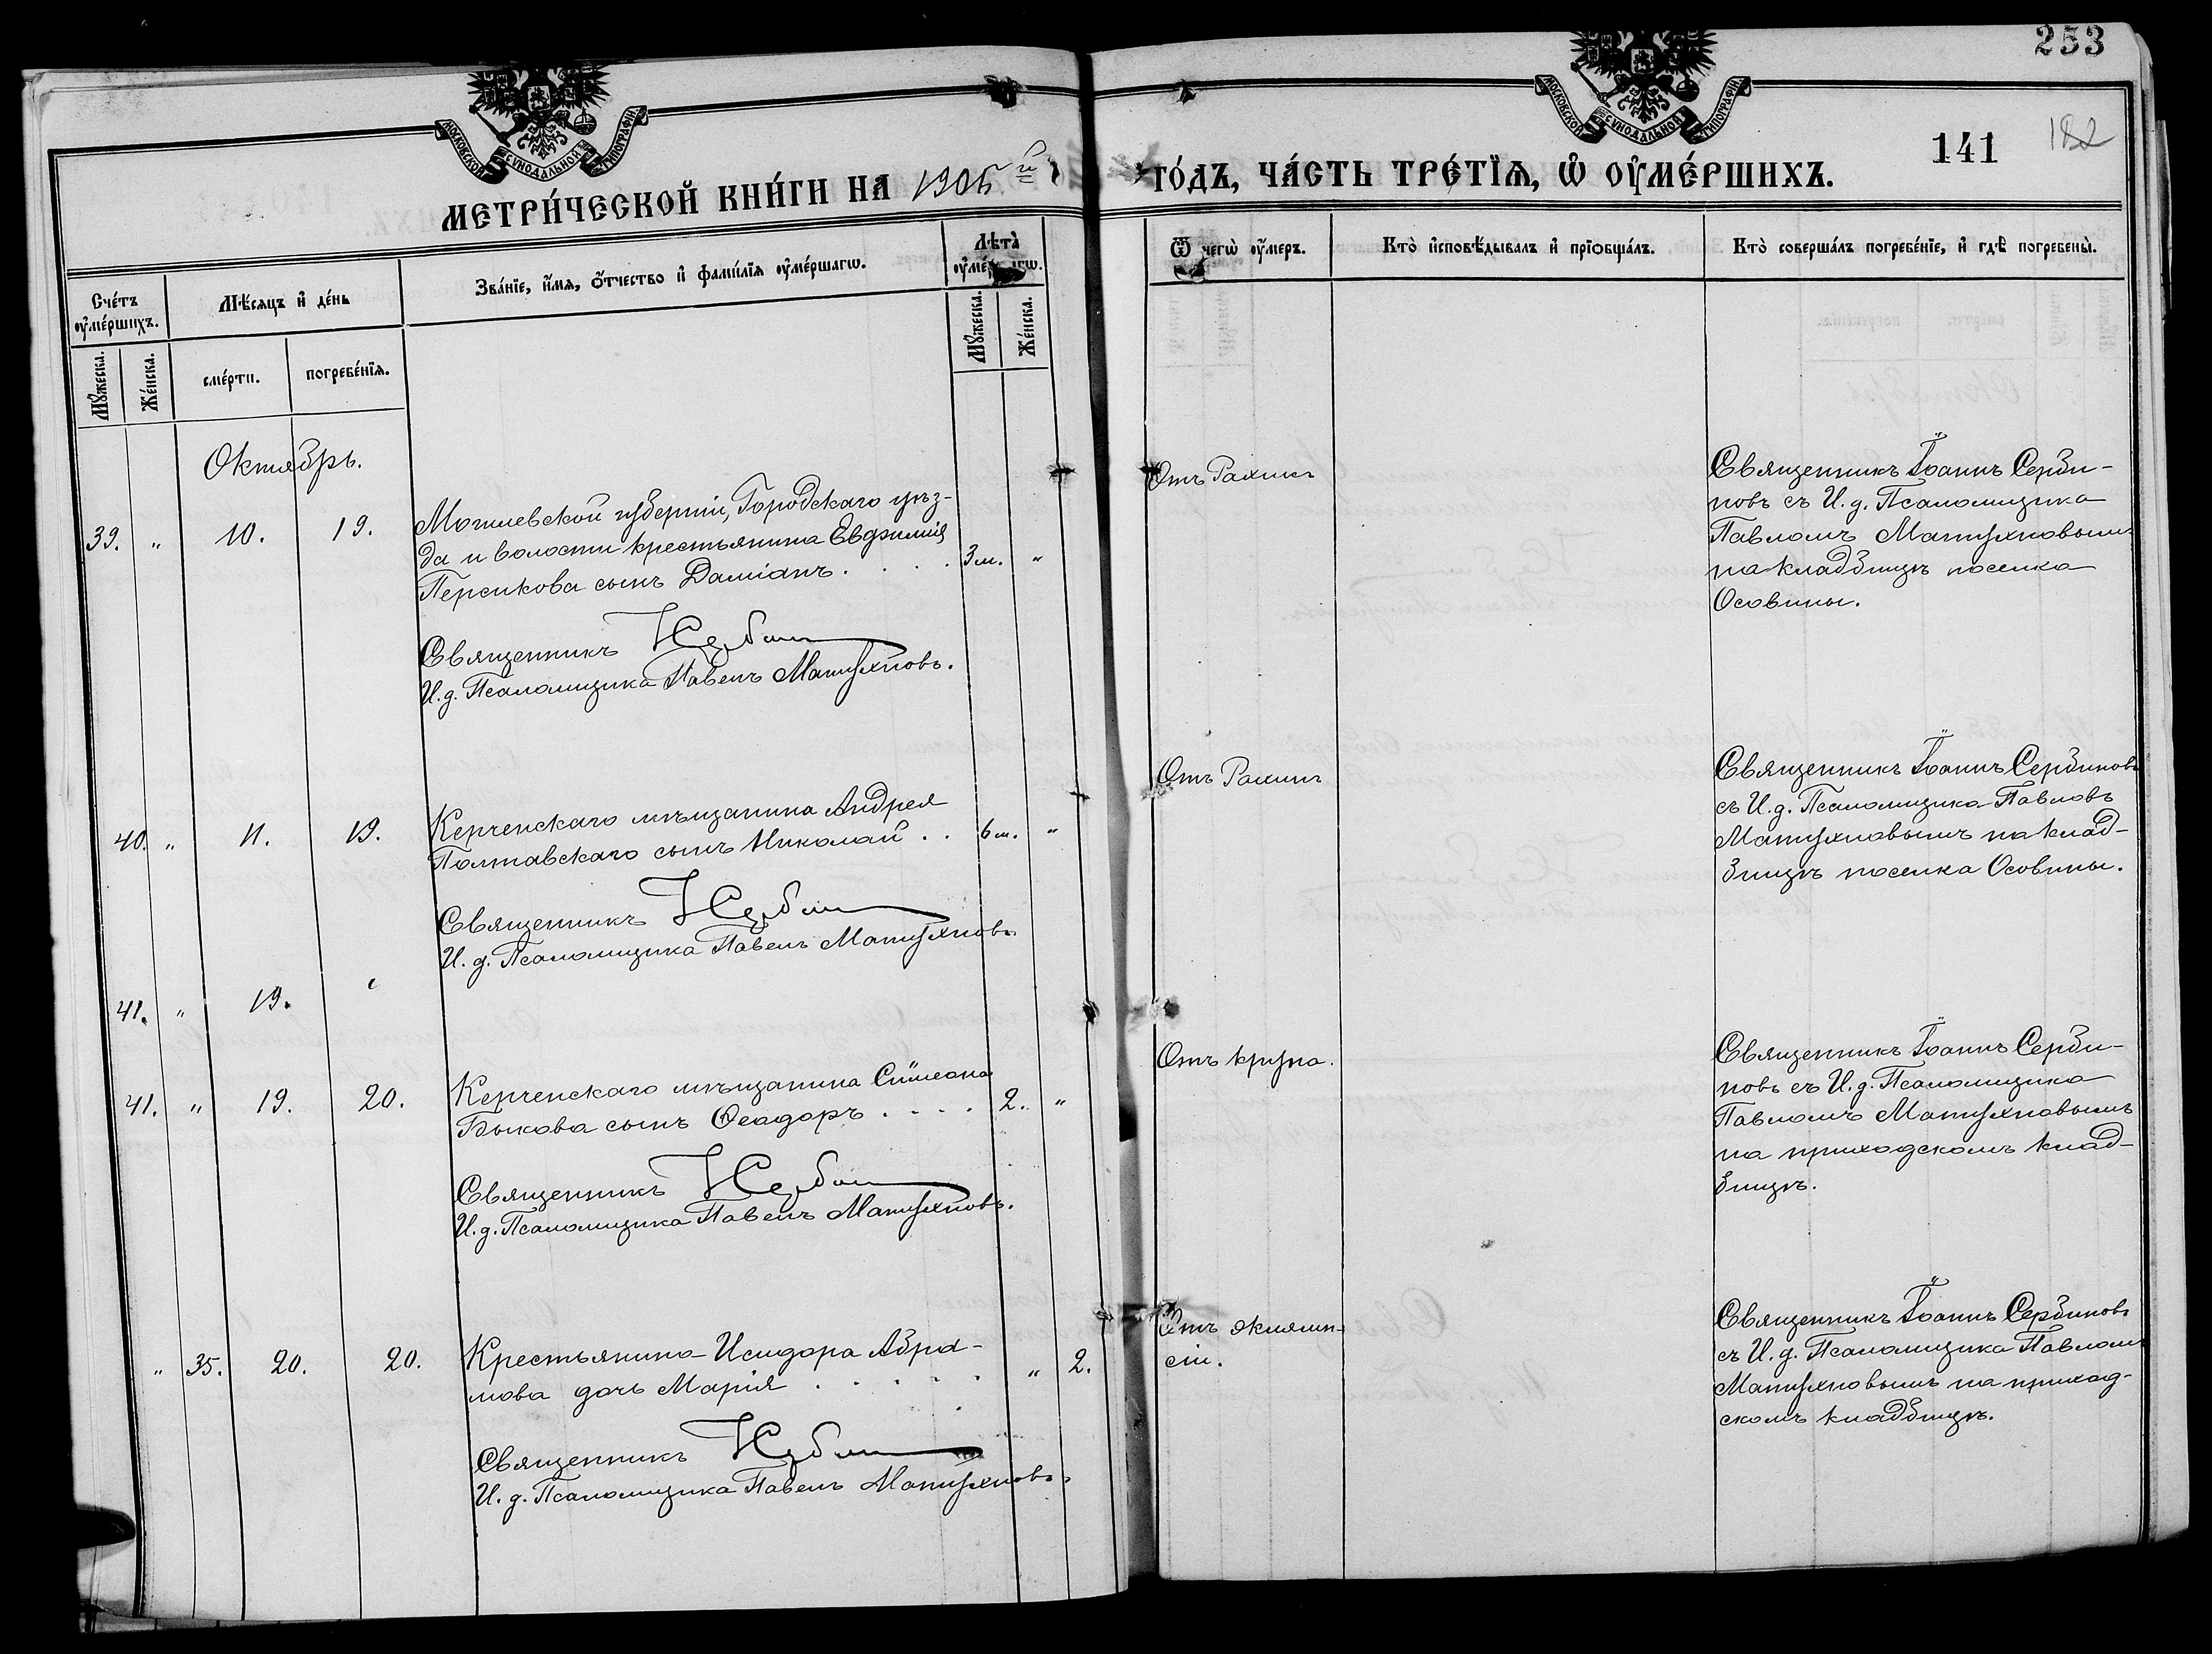 253
МОСКОВСКОЙ СѴНОДАЛЬНОЙ ТИПОГРАФІИ
МОСКОВСКОЙ СѴНОДАЛЬНОЙ ТИПОГРАФІИ
141
МЕТРИ́ЧЕСКОЙ КНИ́ГИ НА 1905й
ГО́ДЪ, ЧА́СТЬ ТРЕ́ТЇѦ, Ѽ ОУ҆МЕ́РШИХЪ.
Сче́тъ оу҆ме́ршихъ.
Мѣ́сяцъ и҆ де́нь
Зва́нїе, и҆́мѧ, ѻ҆́тчество и҆ фамі́лїѧ оу҆ме́ршагѡ.
Лѣ̑та̀ оу҆ме́ршагѡ.
Мꙋ́жеска.
Же́нска.
сме́рти.
погребе́нїѧ.
Мꙋ́жеска.
Же́нска.
Ѿ чегѡ̀ оу҆́меръ.
Кто̀ и҆сповѣ́дывалъ и҆ прїѻбща́лъ.
Кто̀ соверша́лъ погребе́нїе, и҆ гдѣ̀ погребены̀.
Октябрь.
39. " 10. 19.
Могилевской губерніи, Городскаго уѣз-
да и волости крестьянина Евдфимія
Персикова сынъ Даміанъ . . . . 3 м. "
Священникъ
И. д. Псаломщика Павелъ Матухновъ.
Отъ
Священникъ Іоаннъ Серби-
новъ съ И. д. Псаломщика
Павломъ Матухновымъ
на кладбищѣ поселка
Осовины.
40. " 11. 19.
Керченскаго мѣщанина Андрея
Полтавскаго сынъ Николай . . 6 м. "
Священникъ
И. д. Псаломщика Павелъ Матухновъ
Отъ
Священникъ Іоаннъ Сербиновъ
съ И. д. Псаломщика Павловъ
Матухновымъ на клад-
бищѣ поселка Осовины.
41. " 19.
41. " 19. 20.
Керченскаго мѣщанина Сѵмеона
Быкова сынъ Ѳеодоръ . . . . 2. "
Священникъ
И. д. Псаломщика Павелъ Матухновъ.
Отъ крупа.
Священникъ Іоаннъ Серби-
новъ съ И. д. Псаломщика
Павломъ Матухновымъ
на приходскомъ клад-
бищѣ.
" 35. 20. 20.
Крестьянина Исидора Абра-
мова дочь Марія . . . . . " 2.
Священникъ
И. д. Псаломщика Павелъ Матухновъ.
Отъ эклямп-
сіи.
Священникъ Іоаннъ Сербиновъ
съ И. д. Псаломщика Павломъ
Матухновымъ на приход-
скомъ кладбищѣ.